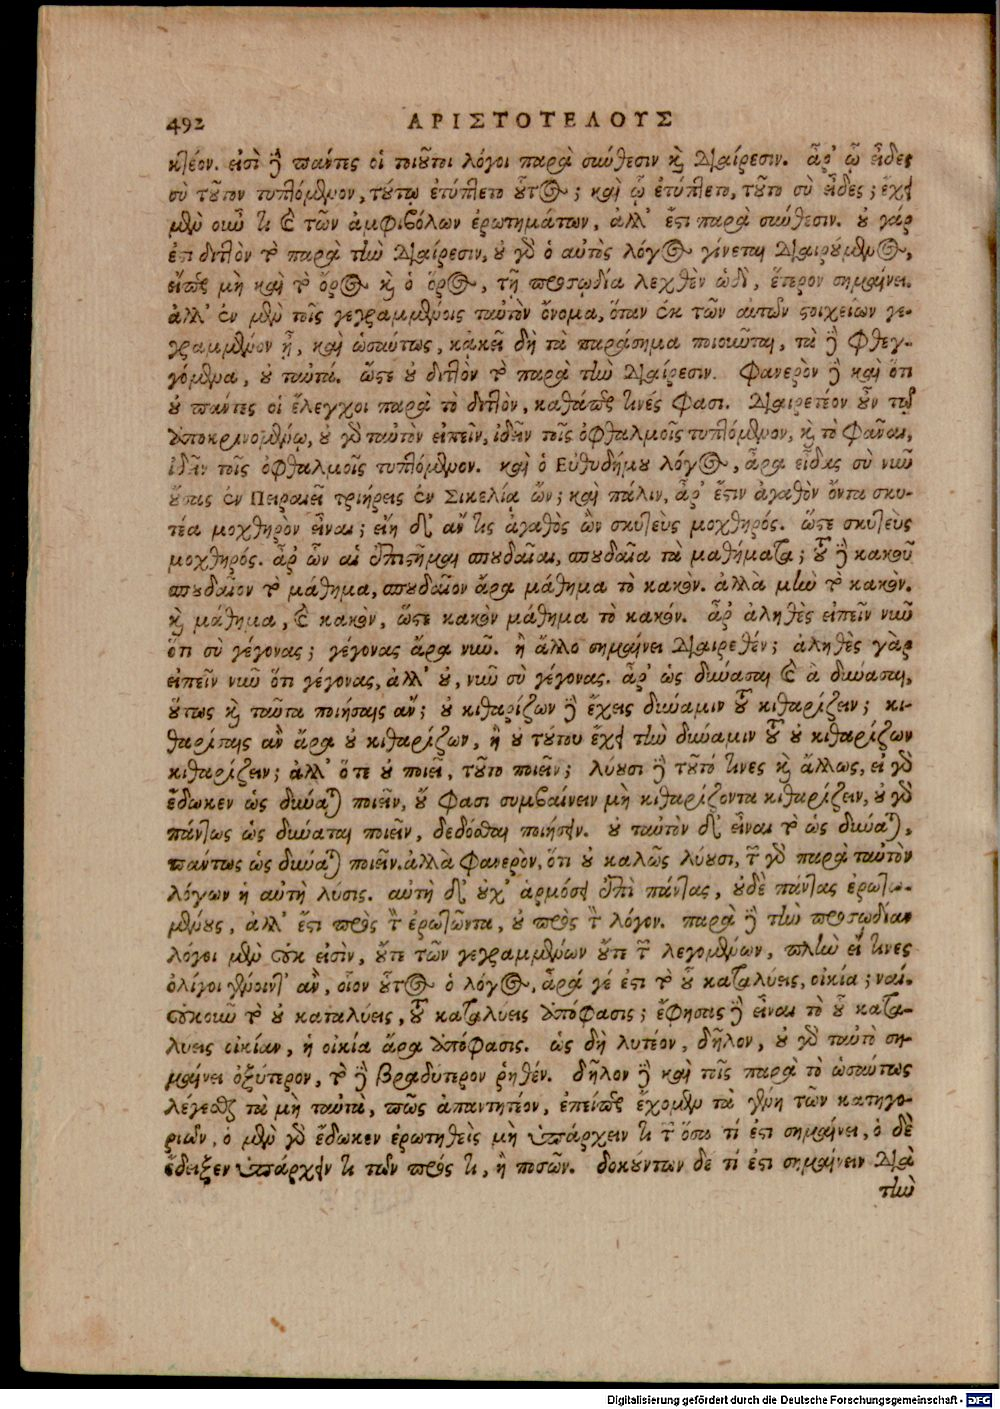 492 ΑΡΙΣΤΟΤΕΛΟΥΣ
κτέον. εἰσὶ δὲ πάντες οἱ τοιοῦτοι λόγοι παρὰ σύνθεσιν καὶ διαίρεσιν. ἆρ' ᾧ εἶδες
σὺ τοῦτον τυπτόμενον, τούτῳ ἐτύπτετο οὗτος; καὶ ᾧ ἐτύπτετο, τοῦτο σὺ εἶδες; ἔχει
μὲν οὖν τι καὶ τῶν ἀμφιβόλων ἐρωτημάτων, ἀλλ' ἔστι παρὰ σύνθεσιν. οὐ γάρ
ἐστι διττὸν τὸ παρὰ τὴν διαίρεσιν, οὐ γὰρ ὁ αὐτὸς λόγος γίνεται διαιρούμενος,
εἴπερ μὴ καὶ τὸ ὄρος καὶ ὁ ὅρος, τῇ προσῳδίᾳ λεχθὲν ὡδὶ, ἕτερον σημαίνει.
ἀλλ' ἐν μὲν τοῖς γεγραμμένοις ταὐτὸν ὄνομα, ὅταν ἐκ τῶν αὐτῶν στοιχείων γε-
γραμμένον ᾖ, καὶ ὡσαύτως, κἀκεῖ δὴ τὰ παράσημα ποιοῦνται, τὰ δὲ φθεγ-
γόμενα, οὐ ταὐτά. ὥστε οὐ διττὸν τὸ παρὰ τὴν διαίρεσιν. Φανερὸν δὲ καὶ ὅτι
οὐ πάντες οἱ ἔλεγχοι παρὰ τὸ διττὸν, καθάπερ τινές φασι. διαιρετέον οὖν τῷ
ἀποκρινομένῳ, οὐ γὰρ ταὐτὸν εἰπεῖν, ἰδεῖν τοῖς ὀφθαλμοῖς τυπτόμενον, καὶ τὸ φᾶναι,
ἰδεῖν τοῖς ὀφθαλμοῖς τυπτόμενον. καὶ ὁ Εὐθυδήμου λόγος, ἆρα εἶδας σὺ νῦν
οὔσας ἐν Πειραιεῖ τριήρεις ἐν Σικελίᾳ ὤν; καὶ πάλιν, ἆρ' ἔστιν ἀγαθὸν ὄντα σκυ-
τέα μοχθηρὸν εἶναι; εἴη δ' ἄν τις ἀγαθὸς ὢν σκυτεὺς μοχθηρός. ὥστε σκυτεὺς
μοχθηρός. ἆρ' ὧν αἱ ἐπιστῆμαι σπουδαῖαι, σπουδαῖα τὰ μαθήματα; τοῦ δὲ κακοῦ
σπουδαῖον τὸ μάθημα, σπουδαῖον ἄρα μάθημα τὸ κακόν. ἀλλὰ μὴν τὸ κακόν.
καὶ μάθημα, καὶ κακὸν, ὥστε κακὸν μάθημα τὸ κακόν. ἆρ' ἀληθὲς εἰπεῖν νῦν
ὅτι σὺ γέγονας; γέγονας ἄρα νῦν. ἢ ἄλλο σημαίνει διαιρεθέν; ἀληθὲς γὰρ
εἰπεῖν νῦν ὅτι γέγονας, ἀλλ' οὐ, νῦν σὺ γέγονας. ἆρ' ὡς δύνασαι καὶ ἃ δύνασαι,
οὕτως καὶ ταῦτα ποιήσαις ἄν; οὐ κιθαρίζων δὲ ἔχεις δύναμιν τοῦ κιθαρίζειν; κι-
θαρίσαις ἂν ἄρα οὐ κιθαρίζων, ἢ οὐ τούτου ἔχει τὴν δύναμιν τοῦ οὐ κιθαρίζων
κιθαρίζειν; ἀλλ' ὅτε οὐ ποιεῖ, τοῦτο ποιεῖν; λύουσι δὲ τοῦτό τινες καὶ ἄλλως, εἰ γὰρ
ἔδωκεν ὡς δύναται ποιεῖν, οὔ φασι συμβαίνειν μὴ κιθαρίζοντα κιθαρίζειν, οὐ γὰρ
πάντως ὡς δύναται ποιεῖν, δεδόσθαι ποιήσειν. οὐ ταὐτὸν δ' εἶναι τὸ ὡς δύναται,
πάντως ὡς δύναται ποιεῖν. ἀλλὰ φανερὸν, ὅτι οὐ καλῶς λύουσι, τῶν γὰρ παρὰ ταὐτὸν
λόγων ἡ αὐτὴ λύσις. αὐτὴ δ' οὐχ' ἁρμόσει ἐπὶ πάντας, οὐδὲ πάντας ἐρωτω-
μένους, ἀλλ' ἔστι πρὸς τὸν ἐρωτῶντα, οὐ πρὸς τὸν λόγον. παρὰ δὲ τὴν προσῳδίαν
λόγοι μὲν οὐκ εἰσὶν, οὔτε τῶν γεγραμμένων οὔτε τῶν λεγομένων, πλὴν εἴ τινες
ὀλίγοι γένοιντ' ἂν, οἷον οὗτος ὁ λόγος, ἆρά γέ ἐστι τὸ οὗ καταλύεις, οἰκία; ναί.
οὐκοῦν τὸ οὐ καταλύεις, τοῦ καταλύεις ἀπόφασις; ἔφησας δὲ εἶναι τὸ οὗ κατα-
λύεις οἰκίαν, ἡ οἰκία ἄρα ἀπόφασις. ὡς δὴ λυτέον, δῆλον, οὐ γὰρ ταὐτὸ ση-
μαίνει ὀξύτερον, τὸ δὲ βραδύτερον ῥηθέν. δῆλον δὲ καὶ τοῖς παρὰ τὸ ὡσαύτως
λέγεσθαι τὰ μὴ ταὐτὰ, πῶς ἀπαντητέον, ἐπείπερ ἔχομεν τὰ γένη τῶν κατηγο-
ριῶν, ὁ μὲν γὰρ ἔδωκεν ἐρωτηθεὶς μὴ ὑπάρχειν τι τῶν ὅσα τί ἐστι σημαίνει, ὁ δὲ
ἔδειξεν ὑπάρχειν τι τῶν πρός τι, ἢ ποσῶν. δοκούντων δέ τί ἐστι σημαίνειν διὰ
τὴν
Digitalisierung gefördert durch die Deutsche Forschungsgemeinschaft - DFG